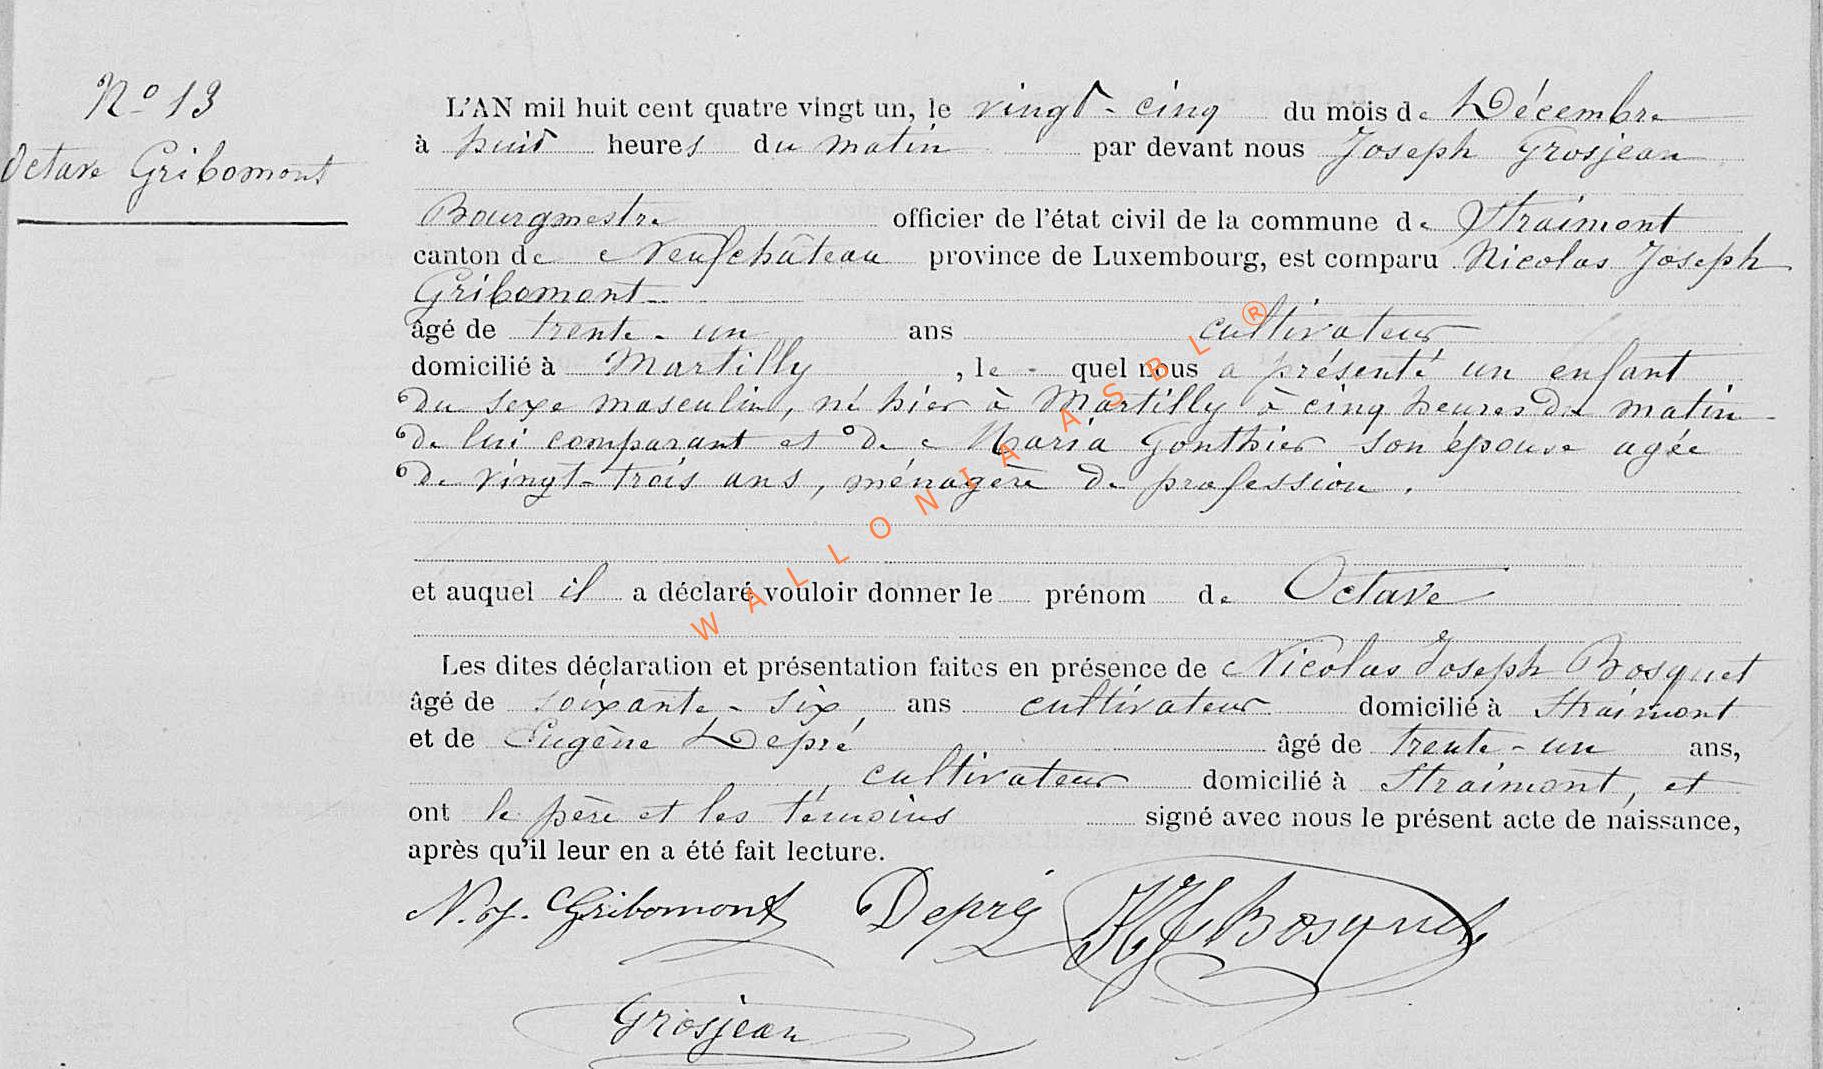 Nº 13
Octave Gribomont
L'AN mil huit cent quatre vingt un, le vingt-cinq du mois de Décembre
à huit heures du matin par devant nous Joseph Grosjean
Bourgmestre officier de l'état civil de la commune de Straimont
canton de Neufchâteau province de Luxembourg, est comparu Nicolas Joseph
Gribomont
âgé de trente-un ans cultivateur
domicilié à Martilly, le-quel nous a présenté un enfant
du sexe masculin, né hier à Martilly à cinq heures du matin
de lui comparant et de Maria Gonthier son épouse agée
de vingt-trois ans, ménagère de profession.
et auquel il a déclaré vouloir donner le prénom de Octave
Les dites déclaration et présentation faites en présence de Nicolas Joseph Bosquet
âgé de soixante-six, ans cultivateur domicilié à Straimont
et de Eugène Depré âgé de trente-un ans,
, cultivateur domicilié à Straimont, et
ont le père et les témoins signé avec nous le présent acte de naissance,
après qu'il leur en a été fait lecture.
N. J. Gribomont Depré Bosquet
Grosjean
WALLONIA ASBL ®